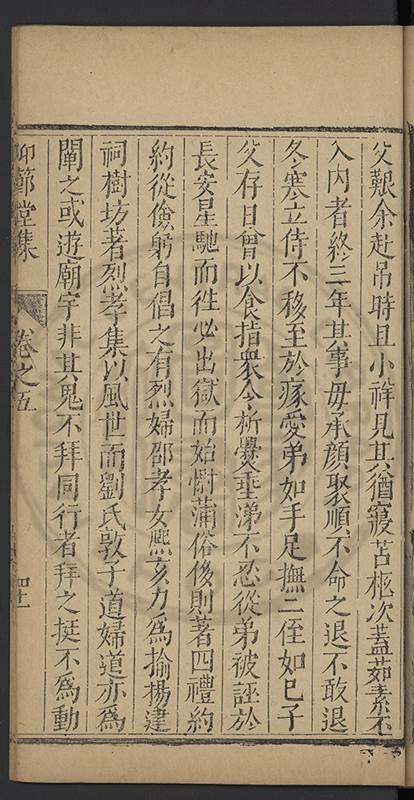 父艱余赴吊時且小祥見其猶寢苫柩次蓋茹素不
入內者終三年其事毋承顏聚順不命之退不敢退
冬寒立侍不移至於瘃愛弟如手足撫二侄如已子
父存日曾以食指衆令析爨垂涕不忍從弟被誣於
長安星馳而徃必出獄而始慰蒲俗後則著四禮約
約從儉躬自倡之有烈婦邵孝女熈亥力為揄揚建
祠樹坊著烈孝集以風世而劉氏敦子道婦道亦為
闡之或遊廟宇非其鬼不拜同行者拜之挺不為動
仰節堂集
卷之五